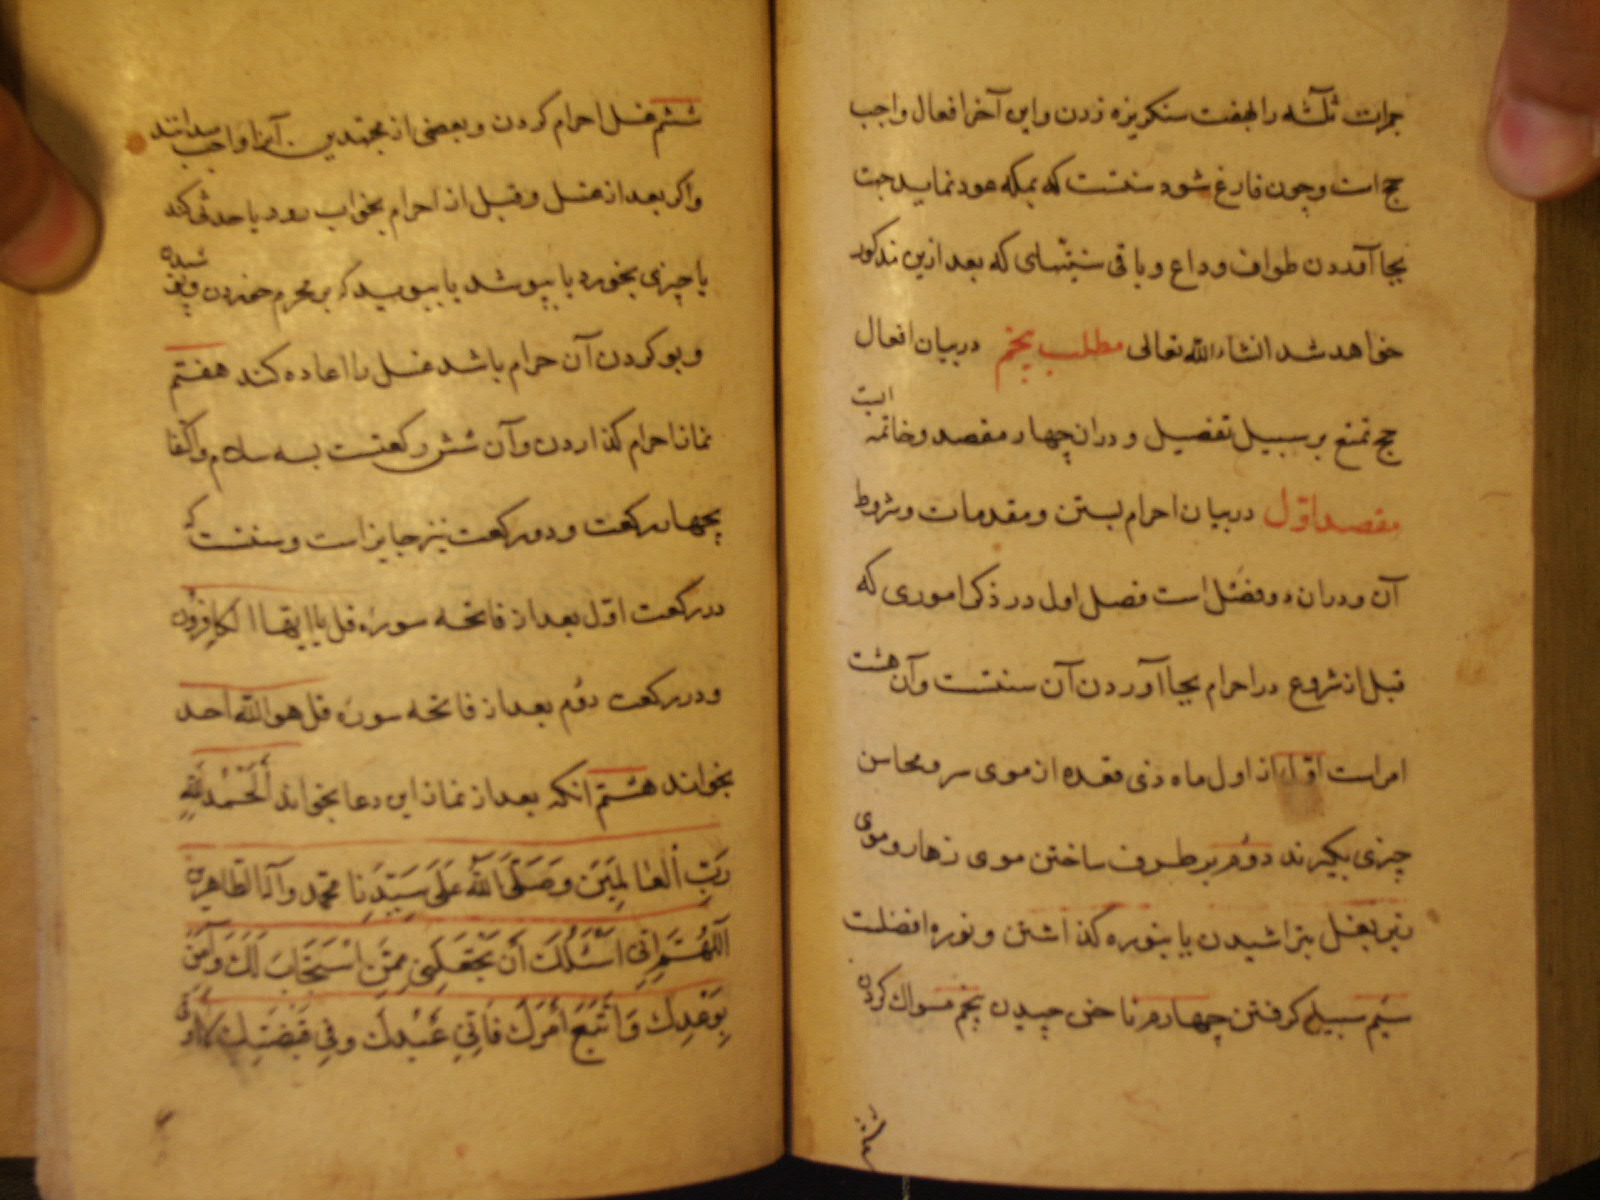 جمرات ثلثه را بهفت سنکریزه زدن واین آخر افعال واجب
حج است وچون فارغ شود سنتست که بمکه عود نماید جهت
بجا آمدن طواف وداع وباقی سنتهای که بعد ازین مذکور
خواهد شد انشاءالله تعالی مطلب پنجم در بیان افعال
حج تمتع بر سبیل تفصیل ودران چهار مقصد وخاتمه است
مقصد اول در بیان احرام بستن ومقدمات وشروط
آن ودران دو فصل است فصل اول در ذکر اموری که
قبل از شروع در احرام بجا آوردن آن سنتست وآن هشت
امر است اول از اول ماه ذی قعده از موی سر ومحاسن
چیزی بگیرند دوم بر طرف ساختن موی زهار وموی
زیر بغل بتراشیدن یا بنوره گذاشتن ونوره افضلست
سیم سبیل کرفتن چهارم ناخن چیدن پنجم مسواک کردن
ششم غسل احرام کردن وبعضی از مجتهدین آنرا واجب میدانند
واکر بعد از غسل وقبل از احرام بخواب رود یا حدثی کند
یا چیزی بخورد یا بپوشد یا ببوید که بر محرم خوردن وپوشیدن
وبو کردن آن حرام باشد غسل را اعاده کند هفتم
نماز احرام کذاردن وآن شش رکعتست بسه سلام واکتفا
بچهار رکعت ودو رکعت نیز جایز است وسنتست که
در رکعت اول بعد از فاتحه سوره قل یا ایها الکافرون
ودر رکعت دوم بعد از فاتحه سوره قل هو الله احد
بخواند هشتم آنکه بعد از نماز این دعا بخواند اَلْحَمْدُ لِلّٰهِ
رَبِّ الْعَالَمِیَنَ وَصَلَّی اللّٰهُ عَلَی سَیِّدِنا محمّد وآله الطاهرین
اَللّٰهُمَّ اِنِّی اَسْئَلُکَ اَنْ تَجْعَلَنِی مِمَّنِ اسْتَجَابَ لَکَ وَآمَنَ
بِوَعْدِکَ وَاتَّبَعَ اَمْرَکَ فَاِنِّی عَبْدُکَ وَفِی قَبْضَتِکَ لا اُوقی